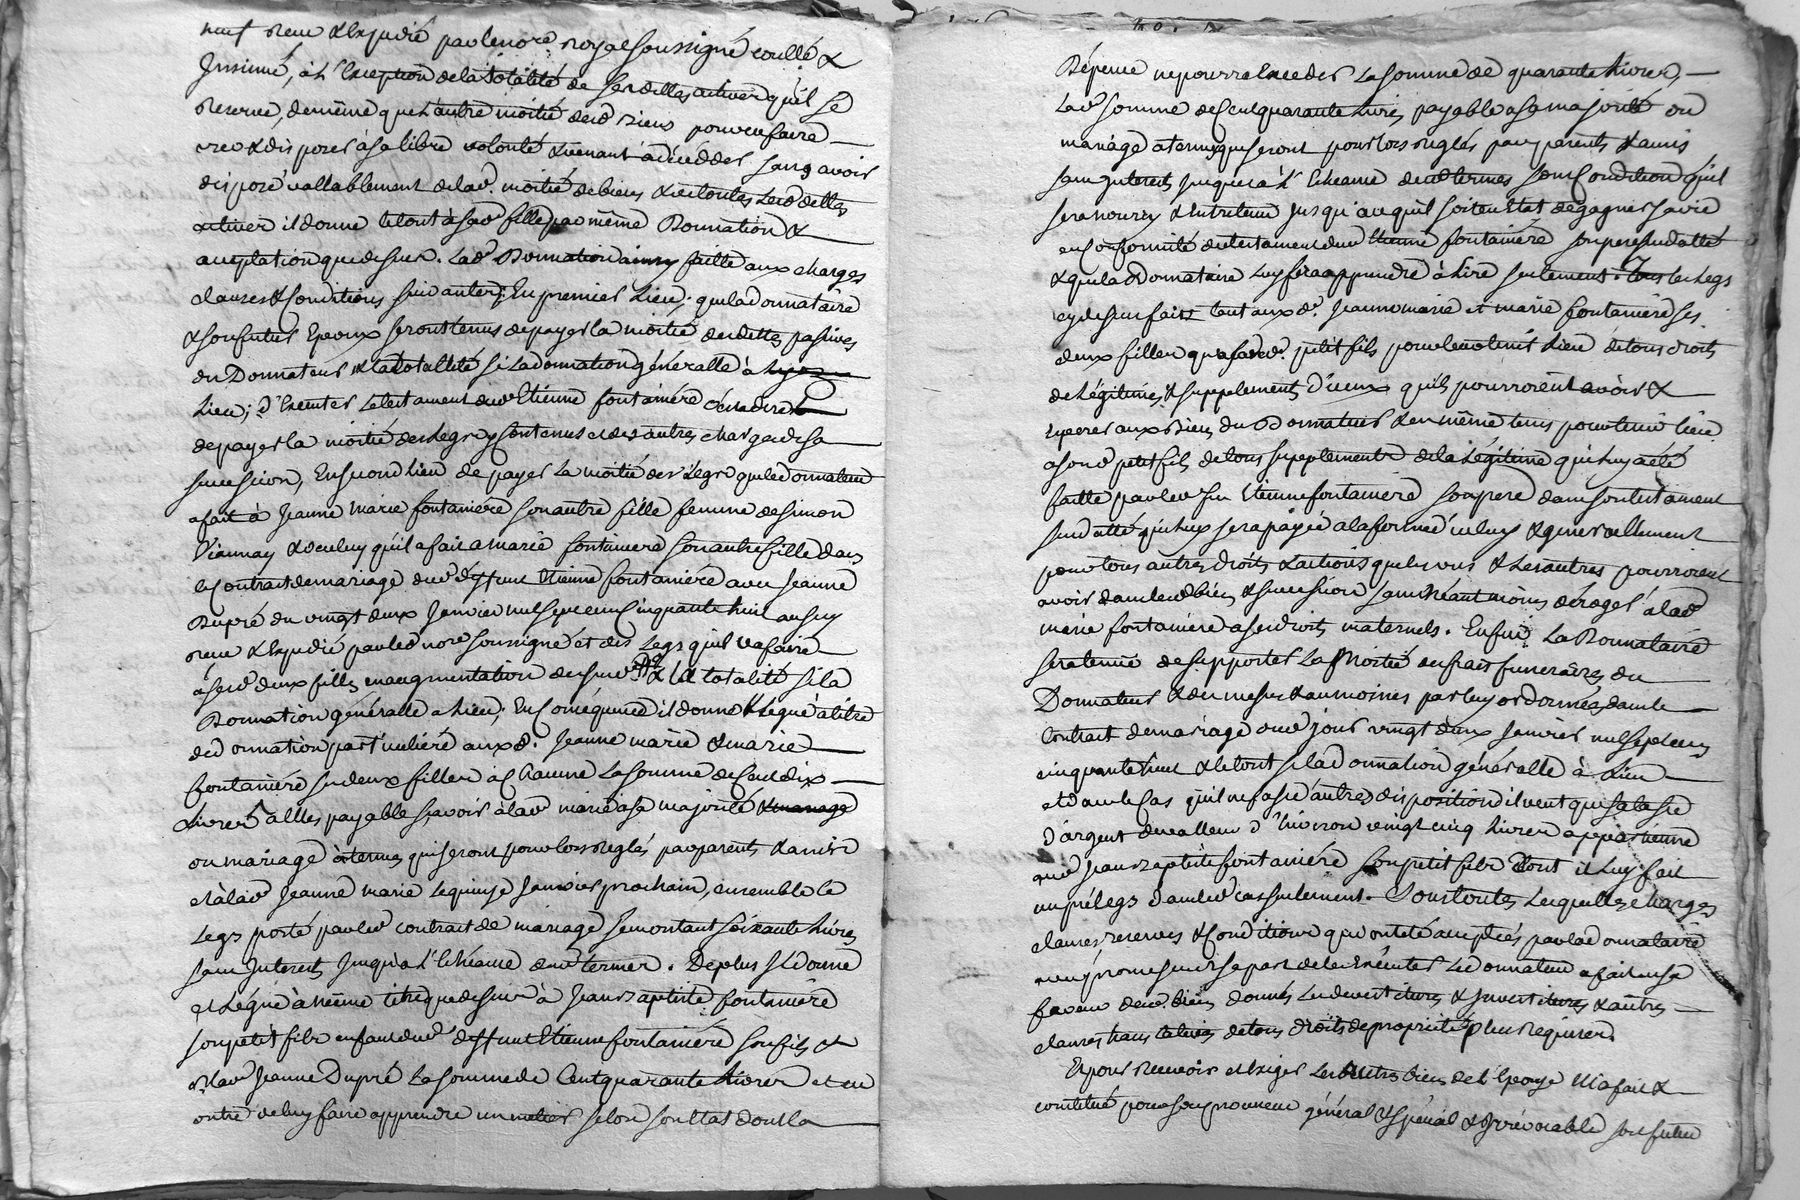 neuf receu & expedié par le no.re royal soussigné coullé &
Insinué, à L'Exception de la totalité de ses dettes actives qu'il se
reserve, de meme que L'autre moitié desd. biens pour en faire
& disposer à sa libre volonté & venant à décédder sans avoir
disposé vallablement de lad. moitié de biens & de toutes lesd. dettes
actives il donne le tout à sad. fille par même Donnation &
acceptation que dessus. Lad. Donnation ainsy faitte aux charges
clauses & Conditions suivantes; En premier Lieu; que la donnataire
& son futur Epoux seront tenus de payer la moitié des dettes passives
du Donnateur & la totallité si La donnation généralle à
Lieu; d'Executer le testament dud. Etienne fontaniére
de payer la moitié des Legs y Contenus et des autres charges de sa
succession, En second Lieu de payer La moitié des Legs que led. donnateur
a fait à Jeanne Marie fontaniére son autre fille femme de Simon
Viannay & de celuy qu'il a fait a marie fontaniere son autre fille dans
le Contrat de mariage dud. deffunt Etienne fontaniére avec Jeanne
Dupré du vingt deux Janvier mil sept cent Cinquante huit aussy
receu & Expedié par led. no.re soussigné et des Legs qu'il va faire
à sesd. deux filles en augmentation & la totalité si la
Donnation généralle a Lieu; En Conséquence il donne & Legue à titre
de donnation particuliére auxd. Jeanne marie & marie
fontaniére ses deux filles à Chacune La somme de Cent dix
Livres à Elles payable, scavoir à lad. marie a sa majorité
ou mariage à termes qui seront pour lors reglés par parents & amis
et à lad. Jeanne marie le quinze Janvier prochain, ensemble le
Legs porté par led. contrat de mariage se montant soixante Livres
sans Interets Jusqu'a L'Echéance desd. termes. De plus il donne
et Légue à même titre que dessus à Jean Baptiste fontaniére
son petit fils enfant dud. deffunt Etienne fontaniére son fils et
de lad. Jeanne Dupré La somme de Cent quarante Livres et en
outre de luy faire apprendre un metier selon son Etat dont la
Dépence ne pourra Exceder La somme de quarante Livres,
Lad. somme de Cent quarante Livres payable a sa majorité ou
mariage a termes qui seront pour lors reglés par parents & amis
sans Interets Jusques à L'Echeance desd. termes sous Condition qu'il
sera nourry & Entretenu Jusqu'a ce qu'il soit en Etat de gagner sa vie
en Conformité du testament dud. Etienne fontaniére son pere susdatté
& que la d. donnataire Luy fera apprendre à Lire seulement. Tous les Legs
cy dessus faits tant auxd. Jeanne marie et marie fontaniére ses
deux filles qu'a sond. petit fils pour leur tenir Lieu de tous droits
de Légitime, & supplements d'iceux qu'ils pourroient avoir &
esperer aux Biens du Donnateur & en même tems pour tenir lieu
a sond. petit fils de tous supplements de la Légitime qui Luy a été
faitte par led. feu Etienne fontaniére son pere dans son testament
susdatté qui Luy sera payée a la forme d'iceluy & generallement
pour tous autres droits & actions que les uns & Les autres pourroient
avoir dans lesd. biens & succession sans néantmoins déroger à lad.
marie fontaniére a ses droits maternels. Enfin La Donnataire
sera tenue de supporter La Moitié des frais funeraires du
Donnateur & des messes & aumones par luy ordonnées dans le
Contrat de mariage dud. jour vingt deux Janvier mil sept cent
cinquante huit & le tout si la donnation généralle à Lieu
et dans le Cas qu'il ne fasse d'autres disposition il veut que
d'argent de valleur d'Environ vingt cinq Livres appartienne
aud. Jean Baptiste fontaniére son petit fils dont il Luy fait
un prélegs dans led. cas seulement. Sous toutes Lesquelles charges
clauses reserves & Conditions qui ont été acceptées par la donnataire
avec promesse de sa part de les Exécuter Le donnateur a fait en sa
faveur desd. biens donnés Les devestitures & Investitures & autres
clauses translatives de tous droits de propriété plus requises.
Et pour recevoir et exiger Les autres biens de L'Epouse Elle a fait &
constitué pour son procureur général & spécial & Irrévocable son futur